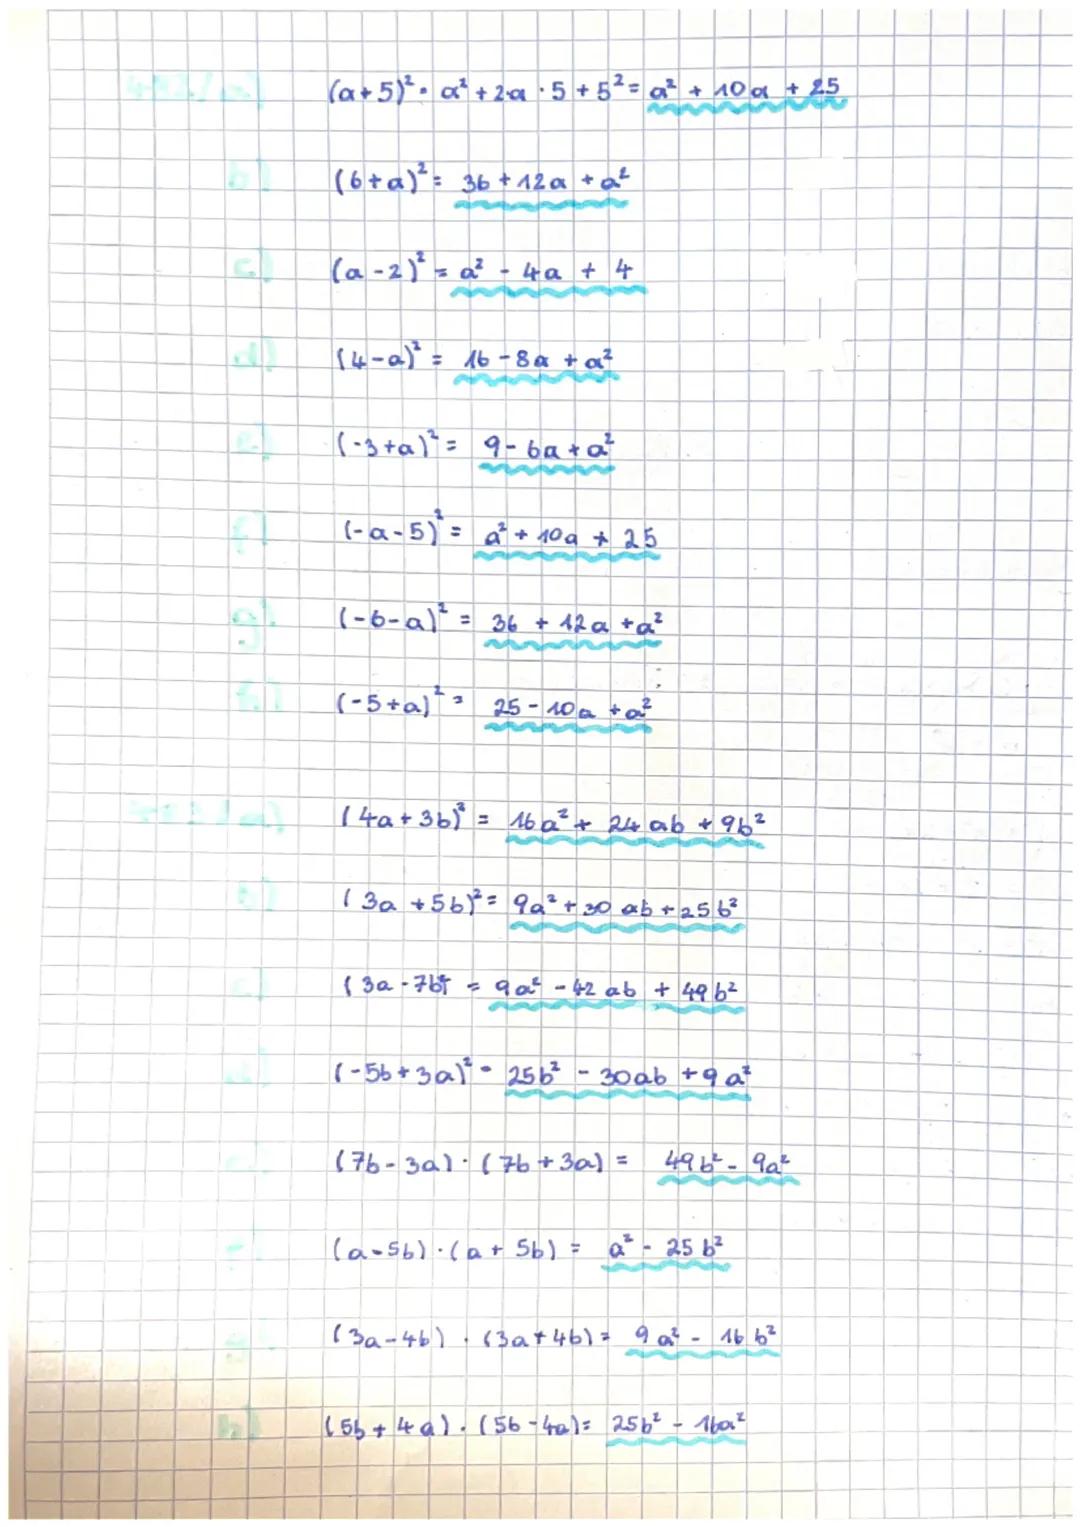 (a+5)² = a² + 2·a · 5 + 5² = a² + 10a + 25
(6+a)² = 36 + 12a + a²
(a-2)² = a² - 4a + 4
(4-a)² = 16 - 8a + a²
(-3+a)² = 9 - 6a + a²
(-a-5)² = a² + 10a + 25
(-6-a)² = 36 + 12a + a²
(-5+a)² = 25 - 10a + a²
(4a+3b)² = 16a² + 24ab + 9b²
(3a+5b)² = 9a² + 30ab + 25b²
(3a-7b)² = 9a² - 42ab + 49b²
(-5b+3a)² = 25b² - 30ab + 9a²
(7b-3a) · (7b+3a) = 49b² - 9a²
(a-5b) · (a+5b) = a² - 25b²
(3a-4b) · (3a+4b) = 9a² - 16b²
(5b+4a) · (5b-4a) = 25b² - 16a²